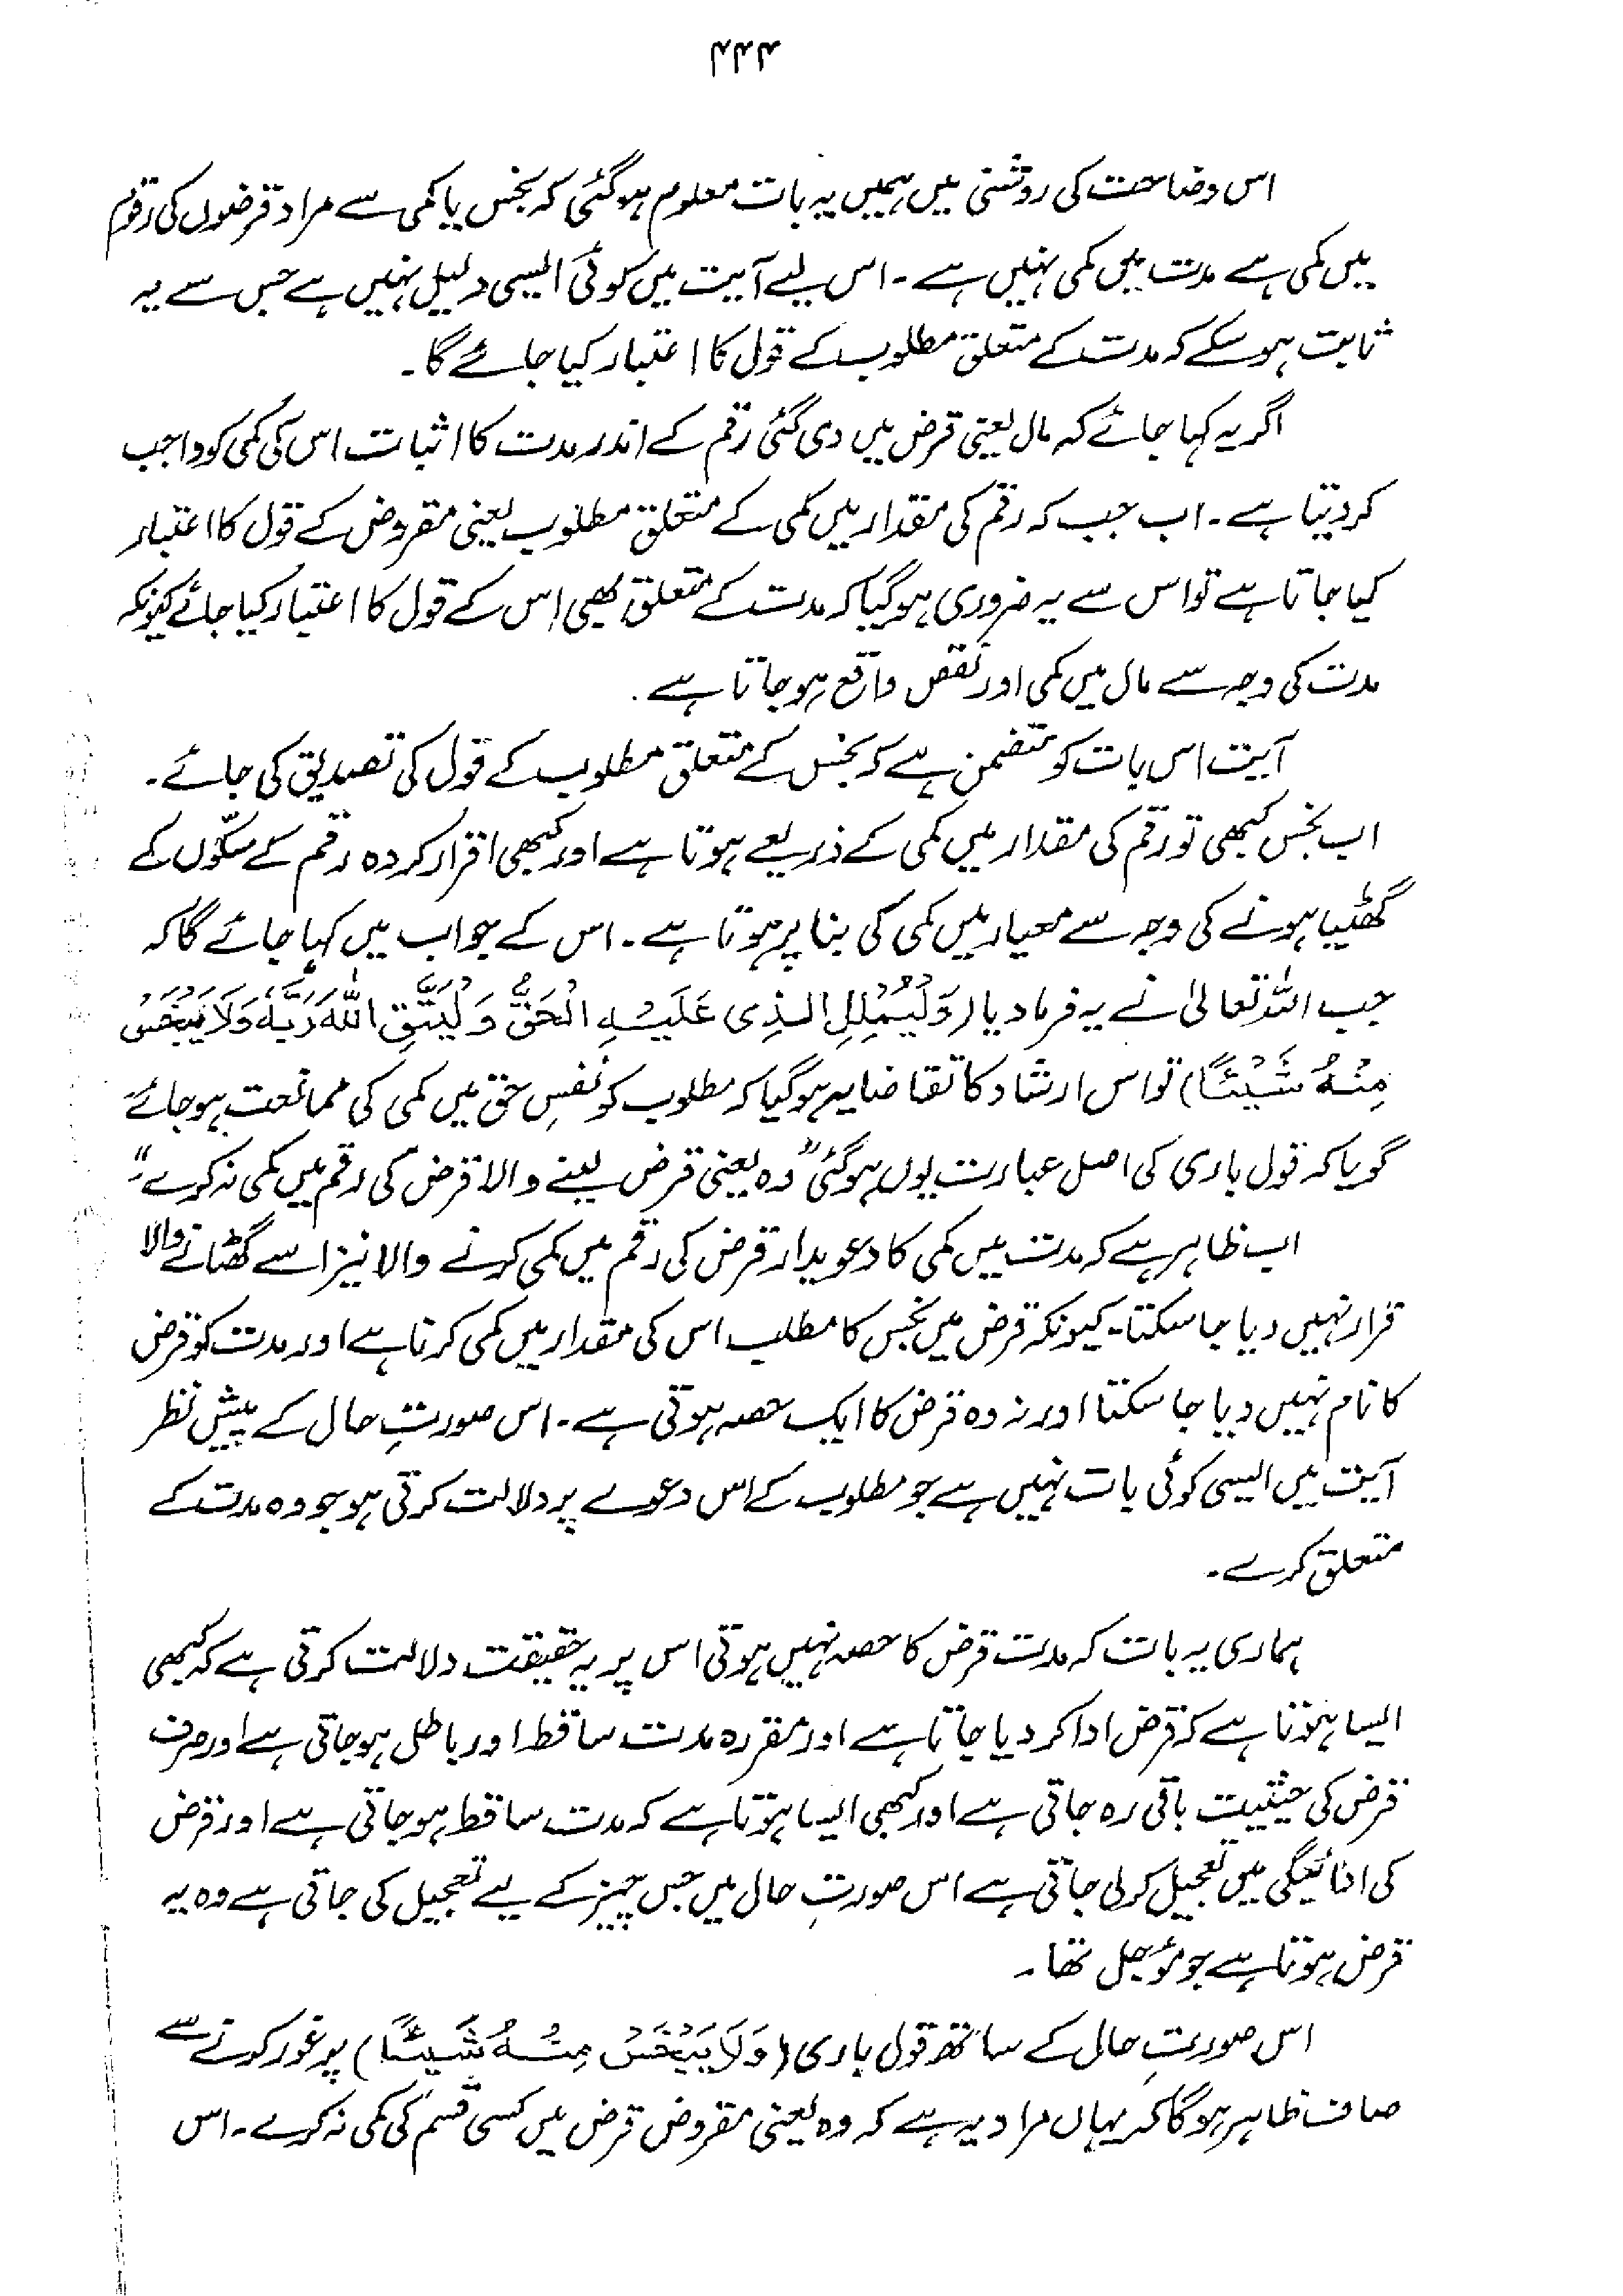 ۴۴۴
اس وضاحت کی روشنی میں ہمیں یہ بات معلوم ہوگئی کہ بخس یا کمی سے مراد قرضوں کی رقوم
میں کمی ہے مدت میں کمی نہیں ہے۔ اس لیے آیت میں کوئی ایسی دلیل نہیں ہے جس سے یہ
ثابت ہوسکے کہ مدت کے متعلق مطلوب کے قول کا اعتبار کیا جائے گا۔
اگر یہ کہا جائے کہ مال یعنی قرض میں دی گئی رقم کے اندر مدت کا اثبات اس کی کمی کو واجب
کردیتا ہے۔ اب جب کہ رقم کی مقدار میں کمی کے متعلق مطلوب یعنی مقروض کے قول کا اعتبار
کیا جاتا ہے تو اس سے یہ ضروری ہوگیا کہ مدت کے متعلق بھی اس کے قول کا اعتبار کیا جائے کیونکہ
مدت کی وجہ سے مال میں کمی اور نقص واقع ہوجاتا ہے۔
آیت اس بات کو متضمن ہے کہ بخس کے متعلق مطلوب کے قول کی تصدیق کی جائے۔
اب بخس کبھی تو رقم کی مقدار میں کمی کے ذریعے ہوتا ہے اور کبھی اقرار کردہ رقم کے سکّوں کے
گھٹیا ہونے کی وجہ سے معیار میں کمی کی بنا پر ہوتا ہے۔ اس کے جواب میں کہا جائے گا کہ
جب اللہ تعالیٰ نے یہ فرما دیا (وَلْيُمْلِلِ الَّذِی عَلَيْهِ الْحَقُّ وَلْيَتَّقِ اللهَ رَبَّهٗ وَلَا يَبْخَسْ
مِنْهُ شَيْئًا) تو اس ارشاد کا تقاضا یہ ہوگیا کہ مطلوب کو نفسِ حق میں کمی کی ممانعت ہوجائے
گویا کہ قول باری کی اصل عبارت یوں ہوگئی "وہ یعنی قرض لینے والا قرض کی رقم میں کمی نہ کرے"۔
اب ظاہر ہے کہ مدت میں کمی کا دعویدار قرض کی رقم میں کمی کرنے والا نیز اسے گھٹانے والا
قرار نہیں دیا جاسکتا۔ کیونکہ قرض میں بخس کا مطلب اس کی مقدار میں کمی کرنا ہے اور مدت کو قرض
کا نام نہیں دیا جا سکتا اور نہ وہ قرض کا ایک حصہ ہوتی ہے۔ اس صورتِ حال کے پیش نظر
آیت میں ایسی کوئی بات نہیں ہے جو مطلوب کے اس دعوے پر دلالت کرتی ہو جو وہ مدت کے
متعلق کرے۔
ہماری یہ بات کہ مدت قرض کا حصہ نہیں ہوتی اس پر یہ حقیقت دلالت کرتی ہے کہ کبھی
ایسا ہوتا ہے کہ قرض ادا کردیا جاتا ہے اور مقررہ مدت ساقط اور باطل ہوجاتی ہے اور صرف
قرض کی حیثیت باقی رہ جاتی ہے اور کبھی ایسا ہوتا ہے کہ مدت ساقط ہوجاتی ہے اور قرض
کی ادائیگی میں تعجیل کرلی جاتی ہے اس صورتِ حال میں جس چیز کے لیے تعجیل کی جاتی ہے وہ یہ
قرض ہوتا ہے جو مؤجل تھا۔
اس صورتِ حال کے ساتھ قول باری (وَلَا يَبْخَسْ مِنْهُ شَيْئًا) پر غور کرنے سے
صاف ظاہر ہوگا کہ یہاں مراد یہ ہے کہ وہ یعنی مقروض قرض میں کسی قسم کی کمی نہ کرے۔ اس